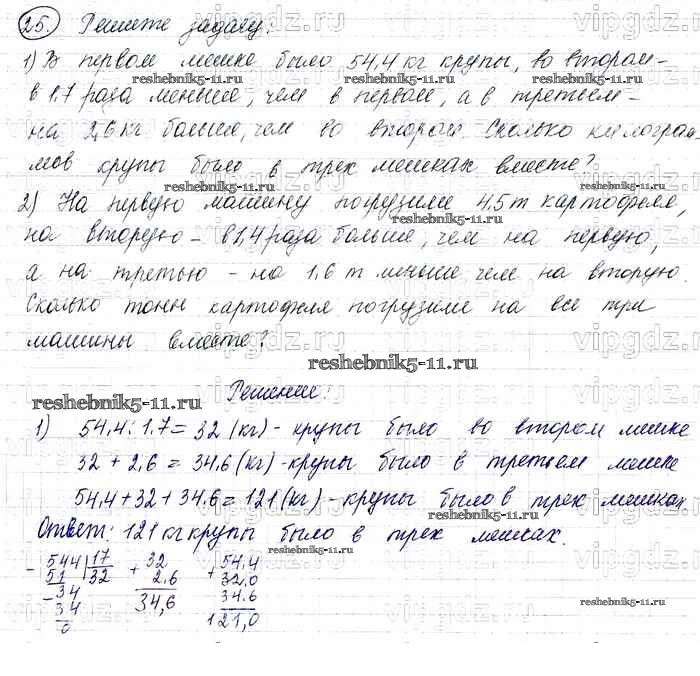 25. Решите задачу:
1) В первом мешке было 54,4 кг крупы, во втором –
в 1,7 раза меньше, чем в первом, а в третьем –
на 2,6 кг больше, чем во втором. Сколько килограм-
мов крупы было в трех мешках вместе?
2) На первую машину погрузили 4,5 т картофеля,
на вторую – в 1,4 раза больше, чем на первую,
а на третью – на 1,6 т меньше чем на вторую.
Сколько тонн картофеля погрузили на все три
машины вместе?
reshebnik5-11.ru
Решение:
1) 54,4 : 1,7 = 32 (кг) - крупы было во втором мешке
32 + 2,6 = 34,6 (кг) - крупы было в третьем мешке
54,4 + 32 + 34,6 = 121 (кг) - крупы было в трех мешках.
Ответ: 121 кг крупы было в трех мешках.
- 544 | 17 + 32 + 54,4
51 32 2,6 32,0
- 34 34,6 34,6
34 121,0
0
reshebnik5-11.ru
vipgdz.ru